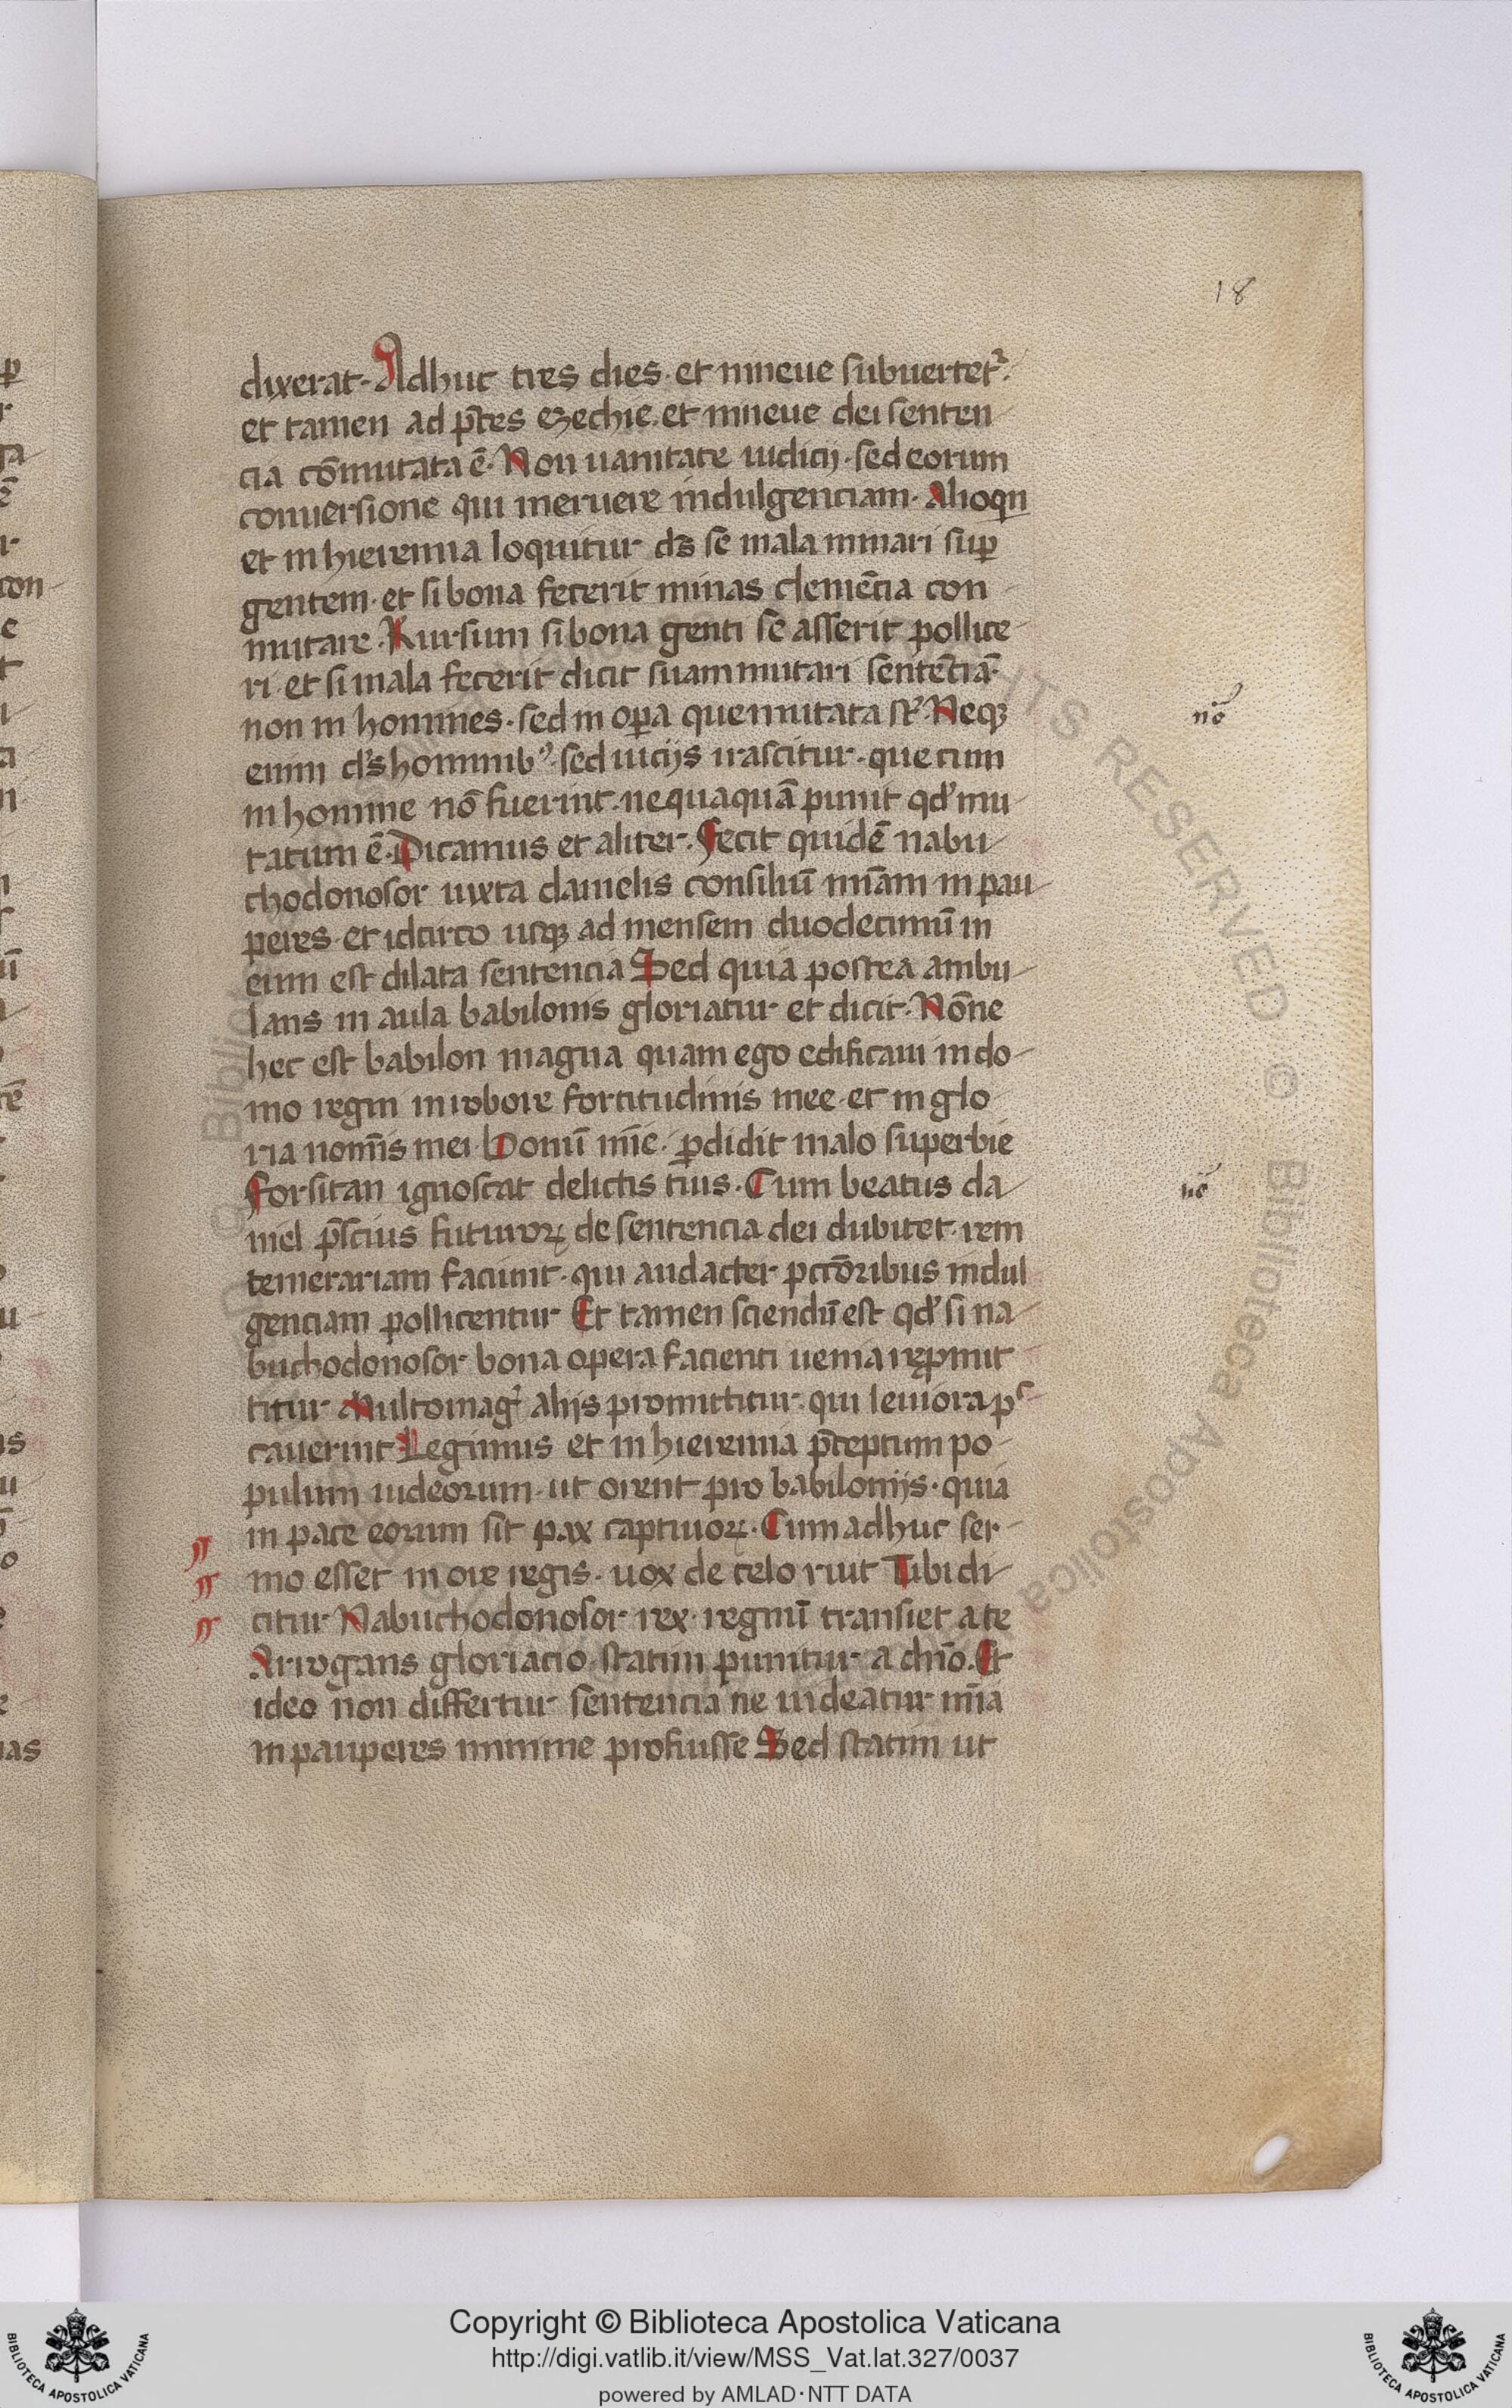 18
dixerat. Adhuc tres dies. et niniue subuertet᷑.
et tamen ad p̄ces ezechie. et niniue dei senten
cia cōmutata ē. Non uanitate iudicij. sed eorum
conuersione qui meruere indulgenciam. Alioqn
et in hieremia loquitur ds̄ se mala minari suꝑ
gentem. et si bona fecerit minas clemēcia con
mutare. Rursum si bona genti se asserit pollice
ri. et si mala fecerit dicit suam mutari sentēciā.
non in homines. sed in oꝑa que mutata st̄. Neqꝫ
nō
enim ds̄ hominibꝰ. sed uicijs irascitur. que cum
in homine nō fuerint. nequaquā punit qd̓ mu
tatum ē. Dicamus et aliter. Fecit quidē nabu
chodonosor iuxta danielis consiliū mīam in pau
peres. et idcirco usqꝫ ad mensem duodecimū in
eum est dilata sentencia Sed quia postea ambu
lans in aula babilonis gloriatur et dicit. Nōne
hec est babilon magna quam ego edificaui in do
mo regni in robore fortitudinis mee. et in glo
ria nomīs mei. Bonū mīe. ꝑdidit malo superbie
Forsitan ignoscat delictis tuis. Cum beatus da
nō
niel p̄scius futuroꝝ de sentencia dei dubitet. rem
temerariam faciunt. qui audacter pctōribus indul
genciam pollicentur Et tamen sciendū est qd̓ si na
buchodonosor bona opera facienti uenia repromit
titur Multo mag᷑ alijs promittitur. qui leuiora pc
cauerint Legimus et in hieremia p̄ceptum po
pulum iudeorum. ut orent pro babilonijs. quia
in pace eorum sit pax captiuoꝝ. Cum adhuc ser
mo esset in ore regis. uox de celo ruit Tibi di
citur Nabuchodonosor rex. regnū transiet a te
Arrogans gloriacio. statim punitur a dn̄o. Et
ideo non differtur sentencia ne uideatur mīa
in pauperes minime profuisse Sed statim ut
Copyright © Biblioteca Apostolica Vaticana
http://digi.vatlib.it/view/MSS_Vat.lat.327/0037
powered by AMLAD·NTT DATA